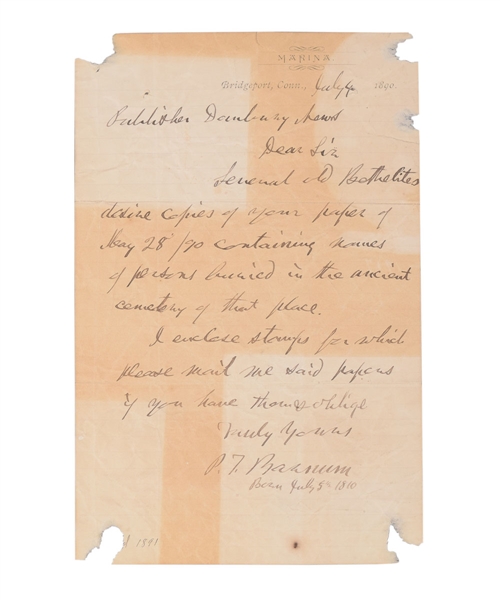 MARINA
Bridgeport, Conn., July 4 1890.
Publisher Danbury News
Dear Sir
Several old Bethelites
desire copies of your paper of
May 28 /90 containing names
of persons buried in the ancient
cemetery of that place.
I enclose stamps for which
please mail me said papers
if you have them & oblige
Truly Yours
P. T. Barnum
Born July 5th 1810
1891